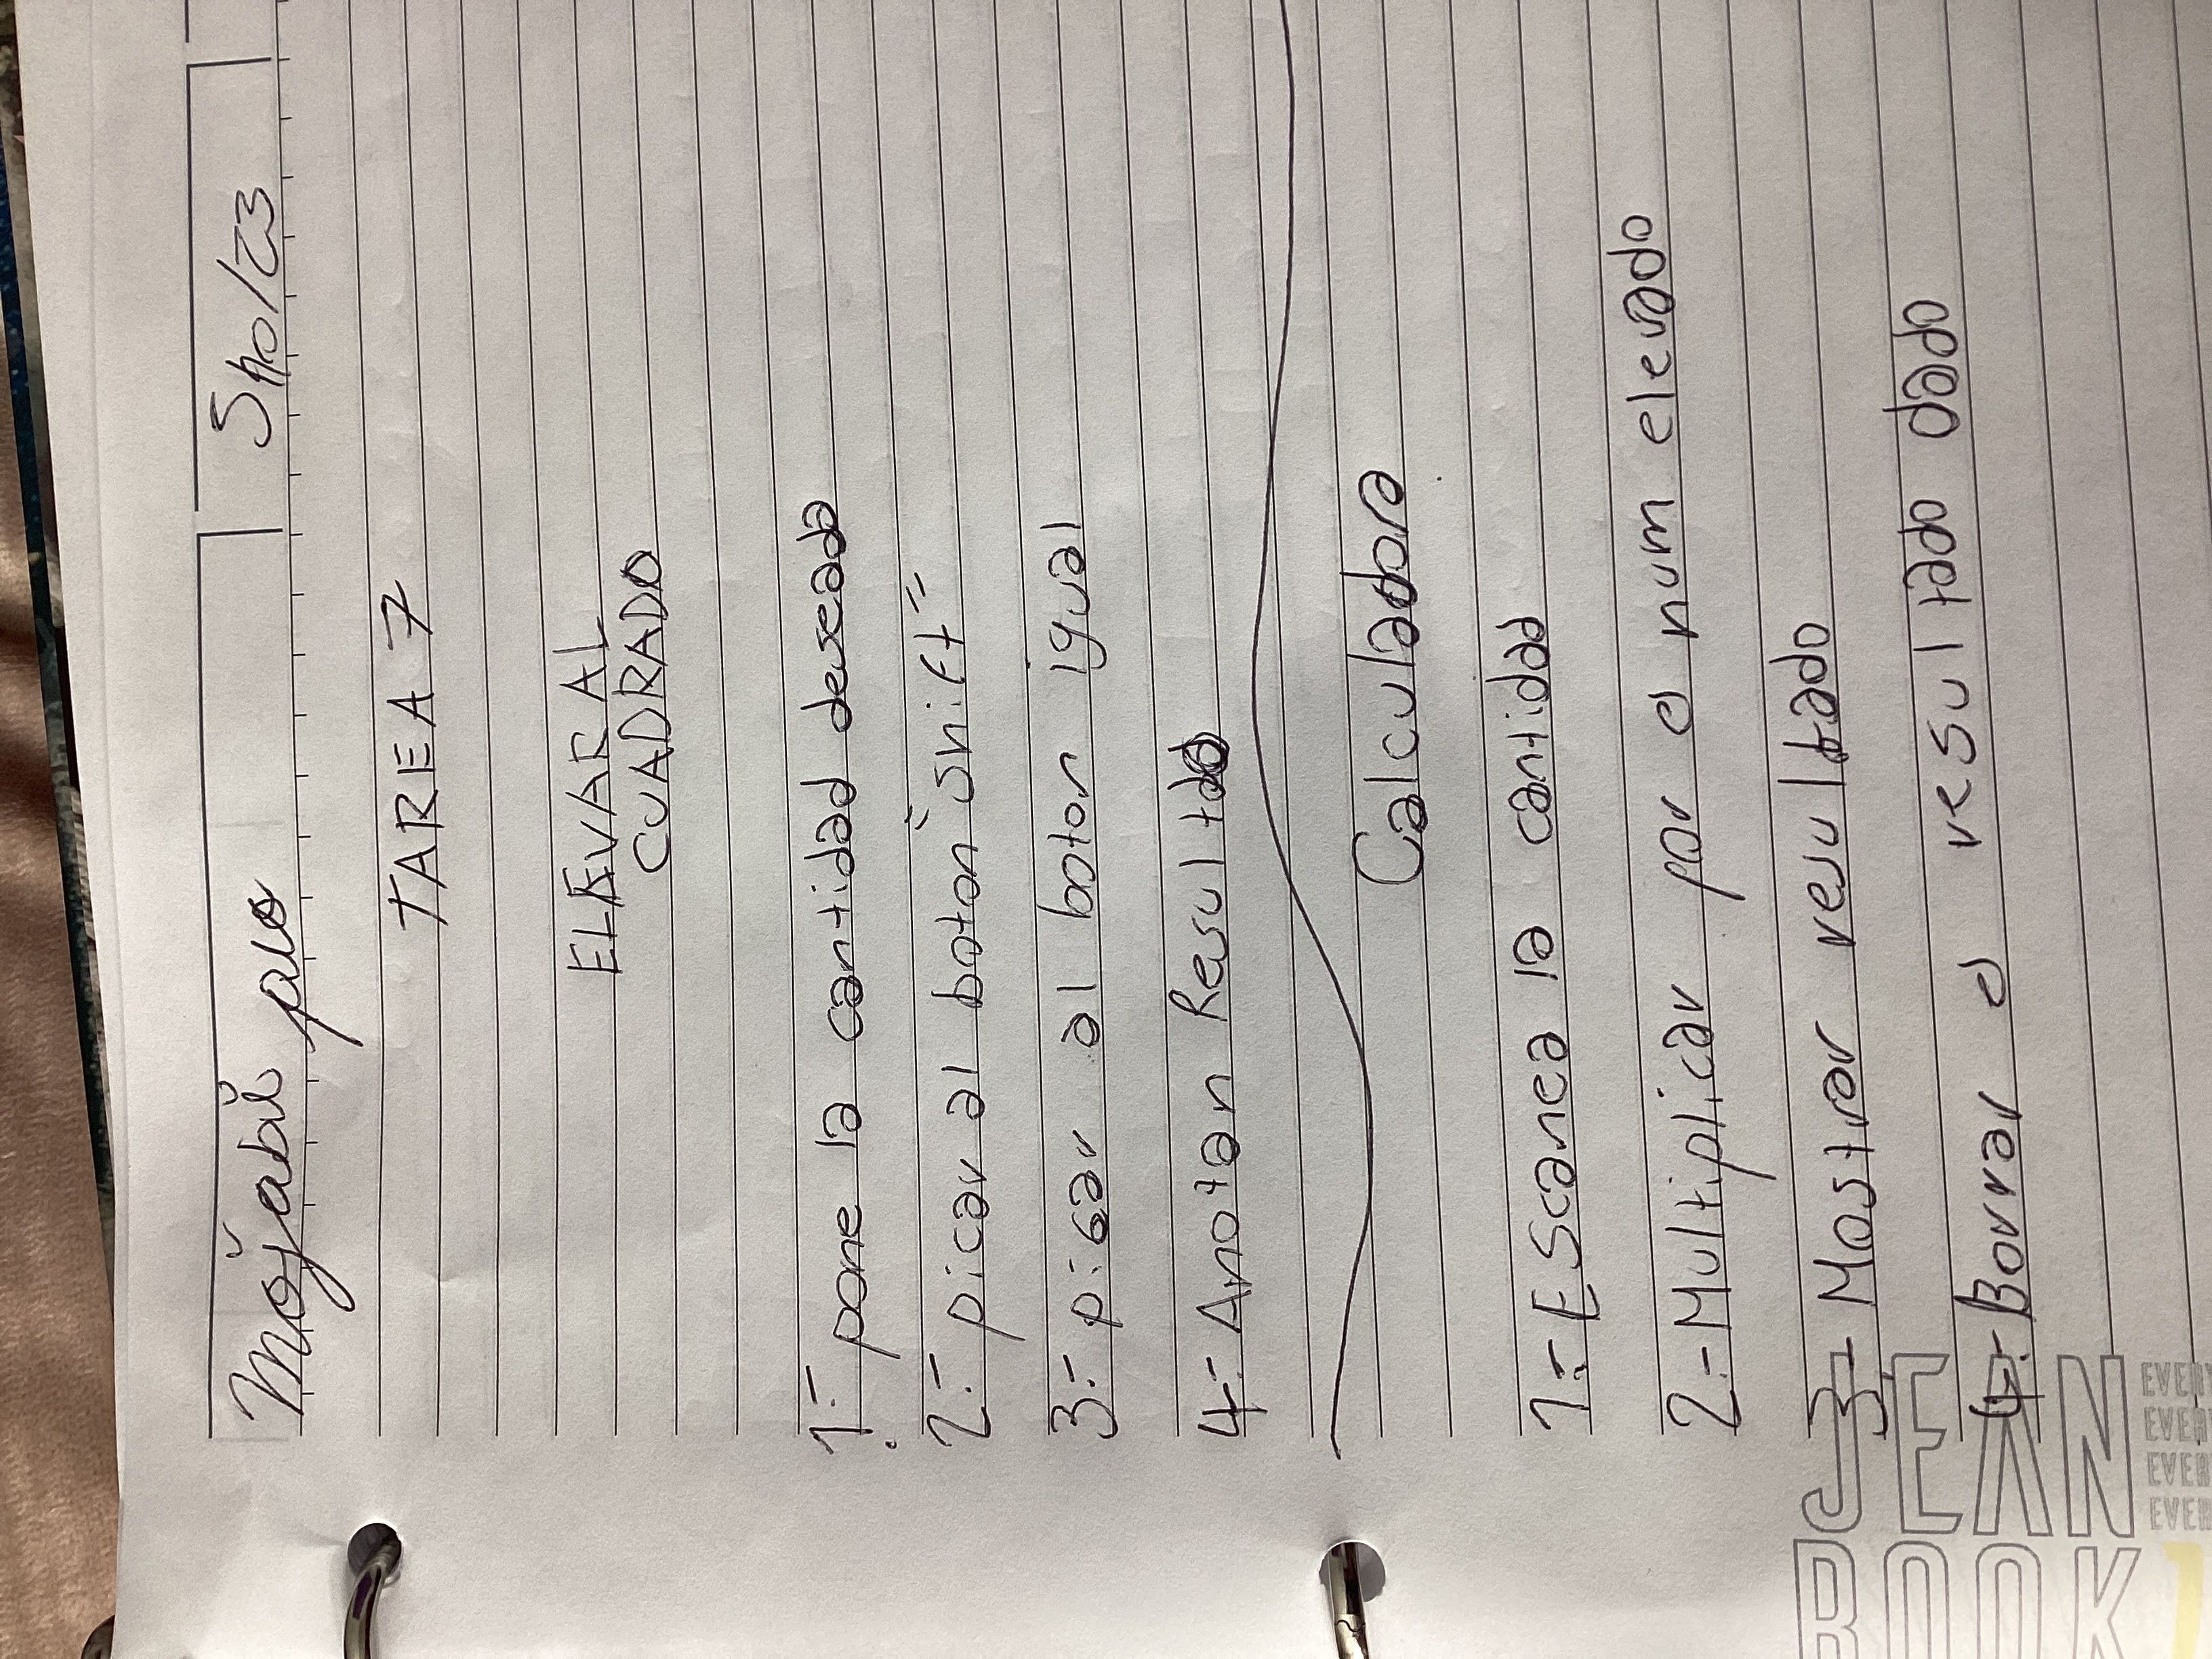 5/10/23
TAREA 7
ELEVAR AL
CUADRADO
1.- pone la cantidad deseada
2.- picar al boton "shift"
3.- picar al boton igual
4.- Anotan Resultado
Calculadora
1.- Escanea la cantidad
2.- Multiplicar por el num elevado
3- Mostrar resultado
4.- Borrar el resultado dado
JEAN
BOOK